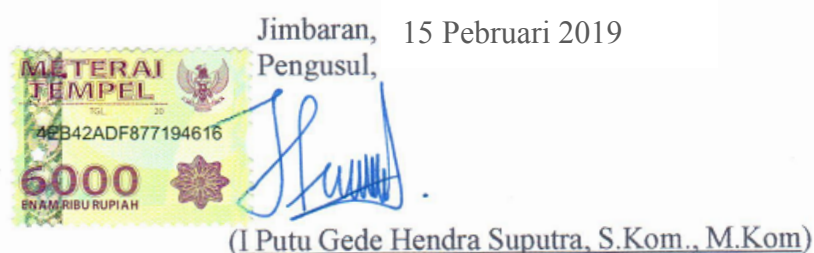 Jimbaran, 15 Pebruari 2019
Pengusul,
METERAI
TEMPEL
TGL. 20
4EB42ADF877194616
6000
ENAM RIBU RUPIAH
(I Putu Gede Hendra Suputra, S.Kom., M.Kom)